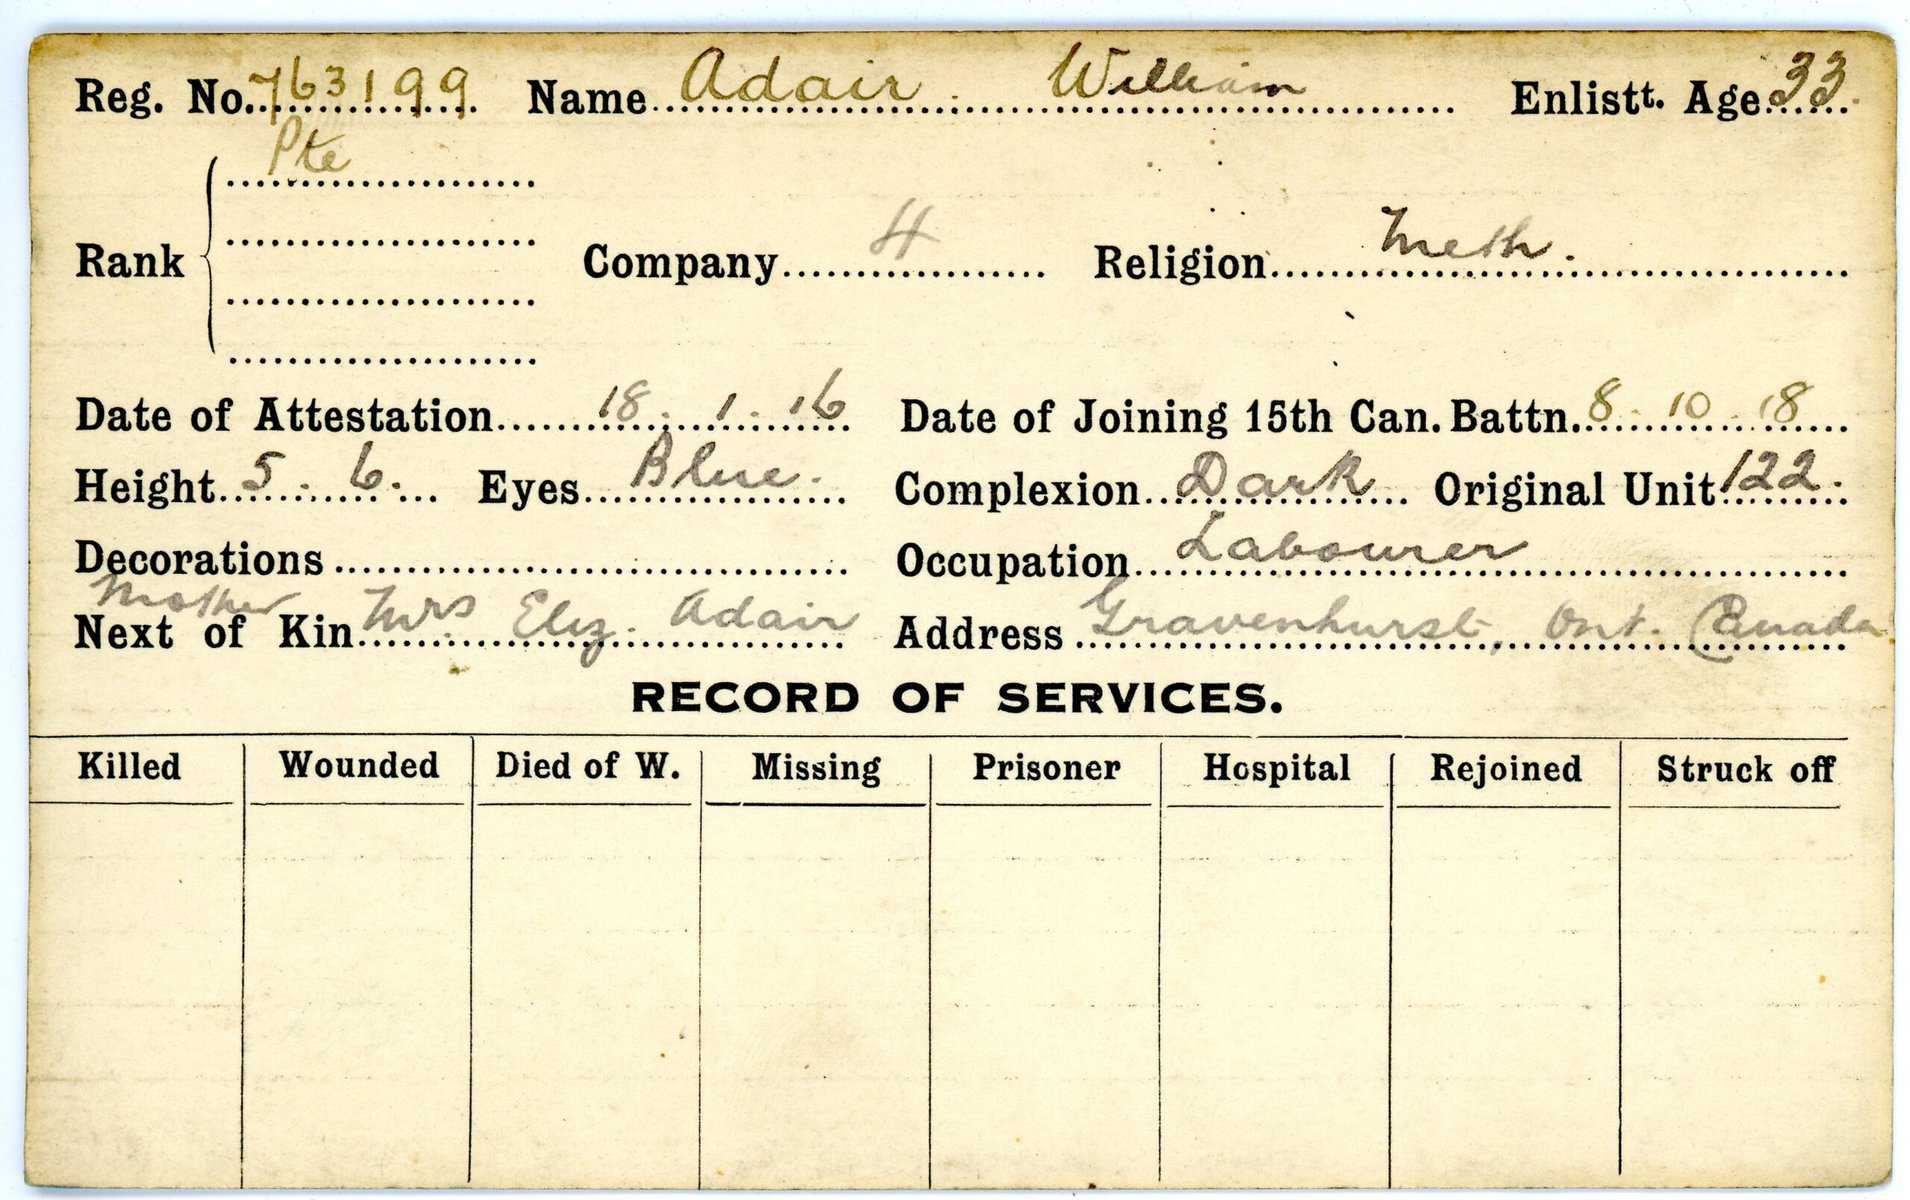 Reg. No. 763199 Name Adair William Enlistt. Age 33
Rank Pte Company 4 Religion Meth.
Date of Attestation 18. 1. 16 Date of Joining 15th Can. Battn. 8 10 18
Height 5. 6. Eyes Blue. Complexion Dark Original Unit 122.
Decorations Occupation Labourer
Mother
Next of Kin Mrs Eliz. Adair Address Gravenhurst, Ont. Canada
RECORD OF SERVICES.
Killed Wounded Died of W. Missing Prisoner Hospital Rejoined Struck off